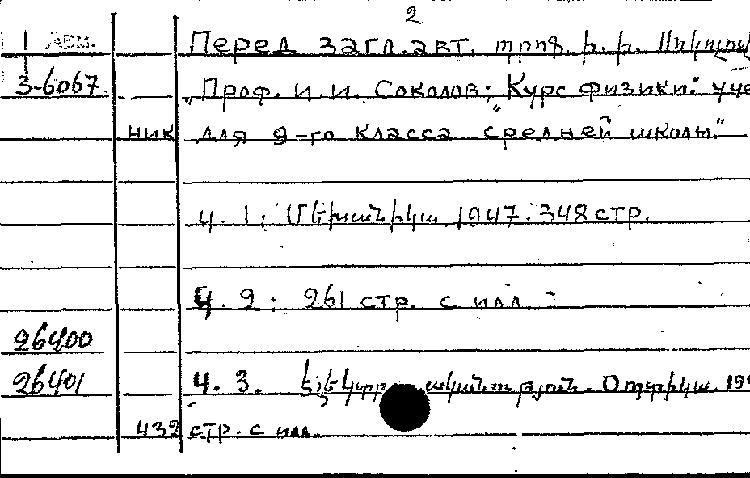 2
Арм. Перед загл. авт. պրոֆ. Ի. Ի. Սոկոլով
3-6067 "Проф. И. И. Соколов; "Курс физики." уче
ник для 9-го класса средней школы"
Ч. 1: Մեխանիկա 1947. 348 стр.
Ч. 2: 261 стр. с илл. -
26400
26401 Ч. 3. Օպտիկա. 19
432 стр. с илл.